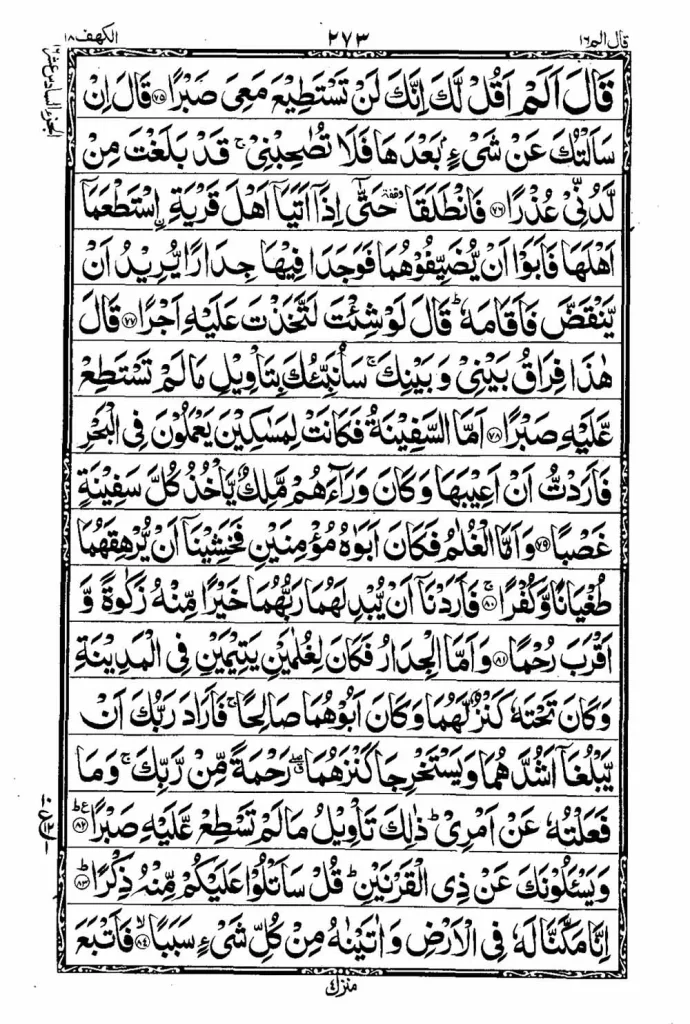 قال الم ١٦
٢٧٣
الكهف ١٨
الجزء السادس عشر
قَالَ اَلَمْ اَقُلْ لَّكَ اِنَّكَ لَنْ تَسْتَطِيْعَ مَعِيَ صَبْرًا ﴿٧٥﴾ قَالَ اِنْ
سَاَلْتُكَ عَنْ شَيْءٍۭ بَعْدَهَا فَلَا تُصٰحِبْنِيْ ۚ قَدْ بَلَغْتَ مِنْ
لَّدُنِّيْ عُذْرًا ﴿٧٦﴾ فَانْطَلَقَا ۥ وقفة حَتّٰۤى اِذَاۤ اَتَيَاۤ اَهْلَ قَرْيَةِ ِۨاسْتَطْعَمَاۤ
اَهْلَهَا فَاَبَوْا اَنْ يُّضَيِّفُوْهُمَا فَوَجَدَا فِيْهَا جِدَارًا يُّرِيْدُ اَنْ
يَّنْقَضَّ فَاَقَامَهٗ ؕ قَالَ لَوْ شِئْتَ لَتَّخَذْتَ عَلَيْهِ اَجْرًا ﴿٧٧﴾ قَالَ
هٰذَا فِرَاقُ بَيْنِيْ وَبَيْنِكَ ۚ سَاُنَبِّئُكَ بِتَاْوِيْلِ مَا لَمْ تَسْتَطِعْ
عَّلَيْهِ صَبْرًا ﴿٧٨﴾ اَمَّا السَّفِيْنَةُ فَكَانَتْ لِمَسٰكِيْنَ يَعْمَلُوْنَ فِي الْبَحْرِ
فَاَرَدْتُّ اَنْ اَعِيْبَهَا وَكَانَ وَرَآءَهُمْ مَّلِكٌ يَّاْخُذُ كُلَّ سَفِيْنَةٍ
غَصْبًا ﴿٧٩﴾ وَاَمَّا الْغُلٰمُ فَكَانَ اَبَوٰهُ مُؤْمِنَيْنِ فَخَشِيْنَاۤ اَنْ يُّرْهِقَهُمَا
طُغْيَانًا وَّكُفْرًا ۚ ﴿٨٠﴾ فَاَرَدْنَاۤ اَنْ يُّبْدِلَهُمَا رَبُّهُمَا خَيْرًا مِّنْهُ زَكٰوةً وَّ
اَقْرَبَ رُحْمًا ﴿٨١﴾ وَاَمَّا الْجِدَارُ فَكَانَ لِغُلٰمَيْنِ يَتِيْمَيْنِ فِي الْمَدِيْنَةِ
وَكَانَ تَحْتَهٗ كَنْزٌ لَّهُمَا وَكَانَ اَبُوْهُمَا صَالِحًا ۚ فَاَرَادَ رَبُّكَ اَنْ
يَّبْلُغَاۤ اَشُدَّهُمَا وَيَسْتَخْرِجَا كَنْزَهُمَا ۖق رَحْمَةً مِّنْ رَّبِّكَ ۚ وَمَا
فَعَلْتُهٗ عَنْ اَمْرِيْ ؕ ذٰلِكَ تَاْوِيْلُ مَا لَمْ تَسْطِعْ عَّلَيْهِ صَبْرًا ؕع ﴿٨٢﴾
وَيَسْـَٔلُوْنَكَ عَنْ ذِي الْقَرْنَيْنِ ؕ قُلْ سَاَتْلُوْا عَلَيْكُمْ مِّنْهُ ذِكْرًا ؕ ﴿٨٣﴾
اِنَّا مَكَّنَّا لَهٗ فِي الْاَرْضِ وَاٰتَيْنٰهُ مِنْ كُلِّ شَيْءٍ سَبَبًا ۙ ﴿٨٤﴾ فَاَتْبَعَ
منزل ٤